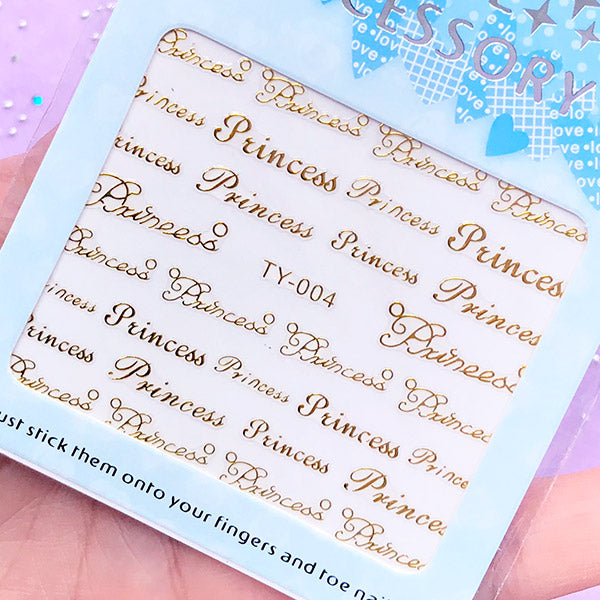 CESSORY
love love
love lo
ove lo
Princess Princess Princess Princess
Princess Princess Princess Princess
Princess Princess Princess Princess
Princess TY-004 Princess
Princess Princess Princess Princess
Princess Princess Princess Princess Princess
Princess Princess Princess Princess
Princess Princess Princess Princess
ust stick them onto your fingers and toe nai